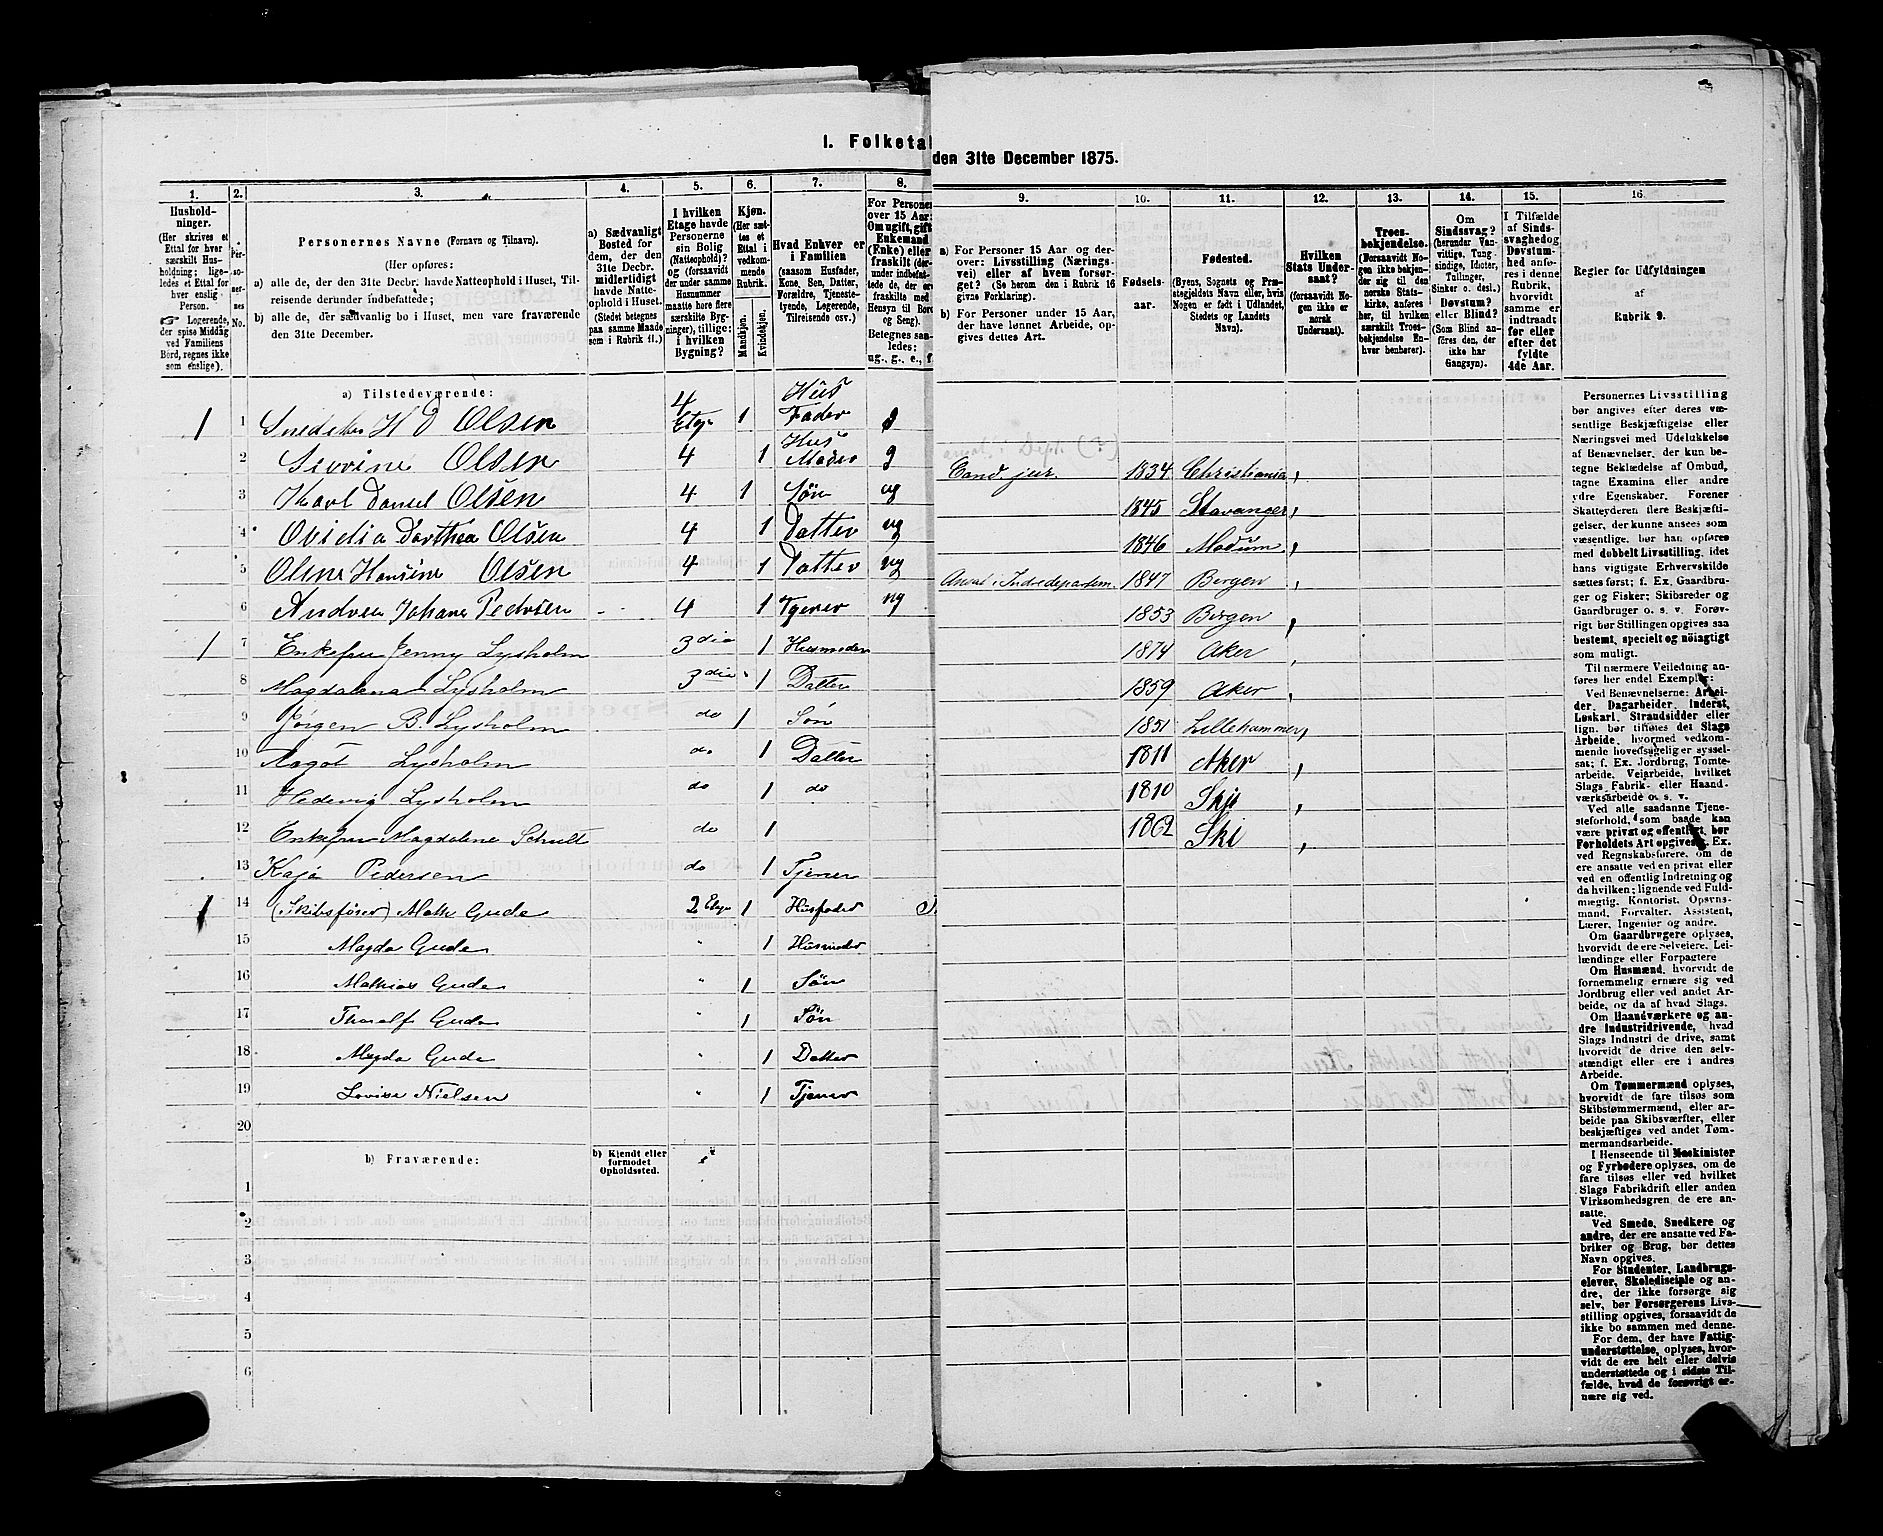 I. Folketal
den 31te December 1875.
1. 2. 3. 4. 5. 6. 7. 8.
9. 10. 11. 12. 13. 14. 15. 16.
Hushold-
ninger.
(Her skrives et
Ettal for hver
særskilt Hus-
holdning; lige-
ledes et Ettal
for hver enslig
Person.
☞ Logerende,
der spise Middag
ved Familiens
Bord, regnes ikke
som enslige).
Per-
so-
ner-
nes
No.
Personernes Navne (Fornavn og Tilnavn).
(Her opføres:
a) alle de, der den 31te Decbr. havde Natteophold i Huset, Til-
reisende derunder indbefattede;
b) alle de, der sædvanlig bo i Huset, men vare fraværende
den 31te December.
a) Sædvanligt
Bosted for
dem, der den
31te Decbr.
midlertidigt
havde Natte-
ophold i Huset.
(Stedet betegnes
paa samme Maade
som i Rubrik 11.)
I hvilken
Etage havde
Personerne
sin Bolig
(Natteophold)?
og (forsaavidt
der under samme
Husnummer
maatte høre flere
særskilte Byg-
ninger), tillige:
i hvilken
Bygning?
Kjøn.
(Her sæt-
tes et
Ettal i
vedkom-
mende
Rubrik.
Mandkjøn.
Kvindekjøn.
Hvad Enhver er
i Familien
(saasom Husfader,
Kone, Søn, Datter,
Forældre, Tjeneste-
tyende, Logerende,
Tilreisende osv.)
For Personer
over 15 Aar:
Om ugift, gift
Enkemand
(Enke) eller
fraskilt (der-
under indbefat-
tede de, der ere
fraskilte med
Hensyn til Bord
og Seng).
Betegnes saa-
ledes:
ug., g., e., f.
a) For Personer 15 Aar og der-
over: Livsstilling (Nærings-
vei) eller af hvem forsør-
get? (Se herom den i Rubrik 16
givne Forklaring).
b) For Personer under 15 Aar,
der have lønnet Arbeide, op-
gives dettes Art.
Fødsels-
aar.
Fødested.
(Byens, Sognets og Præ-
stegjeldets Navn eller, hvis
Nogen er født i Udlandet,
Stedets og Landets
Navn).
Hvilken
Stats Under-
saat?
(forsaavidt No-
gen ikke er
norsk
Undersaat).
Troes-
bekjendelse.
(Forsaavidt No-
gen ikke bekjen-
der sig til den
norske Stats-
kirke, anføres
her, til hvilken
særskilt Troes-
bekjendelse En-
hver henhører).
Om
Sindssvag?
(herunder Van-
vittige, Tung-
sindige, Idioter,
Tullinger,
Sinker o. desl.)
Døvstum?
eller Blind?
(Som Blind an-
føres den, der
ikke har
Gangsyn).
I Tilfælde
af Sinds-
svaghed og
Døvstum-
hed anfø-
res i denne
Rubrik,
hvorvidt
samme er
indtraadt
før eller
efter det
fyldte
4de Aar.
Regler for Udfyldningen
af
Rubrik 9.
a) Tilstedeværende:
1 1 H D Olsen 4 Etge 1 Hus Fader g
2 Sevrine Olsen 4 1 Hus Moder g
3 Karl Daniel Olsen 4 1 Søn ug
4 Ovidia Dorthea Olsen 4 1 Datter ug
5 Oline Hansine Olsen 4 1 Datter ug
6 Andrea Johane Pedersen 4 1 Tjener ug
1 7 Enkefru Jenny Lysholm 3die 1 Husmoder
8 Magdalena Lysholm 3die 1 Datter
9 Jørgen B. Lysholm do 1 Søn
10 Aagot Lysholm do 1 Datter
11 Hedevig Lysholm do 1 do
12 Enkefru Magdalene Schult do 1
13 Kaja Pedersen do 1 Tjener
1 14 (Skibsfører) Math Gude 2 Etge 1 Husfader
15 Magda Gude " 1 Husmoder
16 Mathias Gude " 1 Søn
17 Thoralf Gude " 1 Søn
18 Magda Gude " 1 Datter
19 Lovise Nielsen " 1 Tjener
20
b) Fraværende:
b) Kjendt eller
formodet
Opholdssted.
1
2
3
4
5
6
Cand. jur. 1834 Christiania
1845 Stavanger
1846 Modum
1847 Bergen
1853 Bergen
1874 Aker
1859 Aker
1851 Lillehammer
1811 Aker
1810 Ski
1862 Ski
Personernes Livsstilling
bør angives efter deres væ-
sentlige Beskjæftigelse eller
Næringsvei med Udelukkelse
af Benævnelser, der kun be-
tegne Beklædelse af Ombud,
tagne Examina eller andre
ydre Egenskaber. Forener
Skatteyderen flere Beskjæfti-
gelser, der kunne ansees som
væsentlige, bør han opføres
med dobbelt Livsstilling, idet
hans vigtigste Erhvervskilde
sættes først; f. Ex. Gaardbru-
ger og Fisker; Skibsreder og
Gaardbruger o. s. v. Forøv-
rigt bør Stillingen opgives saa
bestemt, specielt og nöiagtigt
som muligt.
Til nærmere Veiledning an-
føres her endel Exempler:
Ved Benævnelserne: Arbei-
der, Dagarbeider, Inderst,
Løskarl, Strandsidder eller
lign. bør tilføies det Slags
Arbeide, hvormed vedkom-
mende hovedsagelig er syssel-
sat; f. Ex. Jordbrug, Tomte-
arbeide, Veiarbeide, hvilket
Slags Fabrik- eller Haand-
værksarbeide o. s. v.
Ved alle saadanne Tjene-
steforhold, som baade kan
være privat og offentligt, bør
Forholdets Art opgives. Ex.
ved Regnskabsførere, om de
ere ansatte ved en privat eller
ved en offentlig Indretning og
da hvilken; lignende ved Fuld-
mægtig, Kontorist, Opsyns-
mand, Forvalter, Assistent,
Lærer, Ingeniør og andre.
Om Gaardbrugere oplyses,
hvorvidt de ere Selveiere, Lei-
lændinge eller Forpagtere
Om Husmænd, hvorvidt de
fornemmelig ernære sig ved
Jordbrug eller ved andet Ar-
beide, og da af hvad Slags.
Om Haandværkere og an-
dre Industridrivende, hvad
Slags Industri de drive, samt
hvorvidt de drive den selv-
stændigt eller ere i andres
Arbeide.
Om Tømmermænd oplyses,
hvorvidt de fare tilsøs som
Skibstømmermænd, eller ar-
beide paa Skibsværfter, eller
beskjæftiges ved andet Tøm-
mermandsarbeide.
I Henseende til Maskinister
og Fyrbødere oplyses, om de
fare tilsøs eller ved hvilket
Slags Fabrikdrift eller anden
Virksomhedsgren de ere an-
satte.
Ved Smede, Snedkere og
andre, der ere ansatte ved Fa-
briker og Brug, bør dettes
Navn opgives.
For Studenter, Landbrugs-
elever, Skoledisciple og an-
dre, der ikke forsørge sig
selv, bør Forsørgerens Livs-
stilling opgives, forsaavidt de
ikke bo sammen med denne.
For dem, der have Fattig-
understøttelse, oplyses, hvor-
vidt de ere helt eller delvis
understøttede og i sidste Til-
fælde, hvad de forøvrigt er-
nære sig ved.